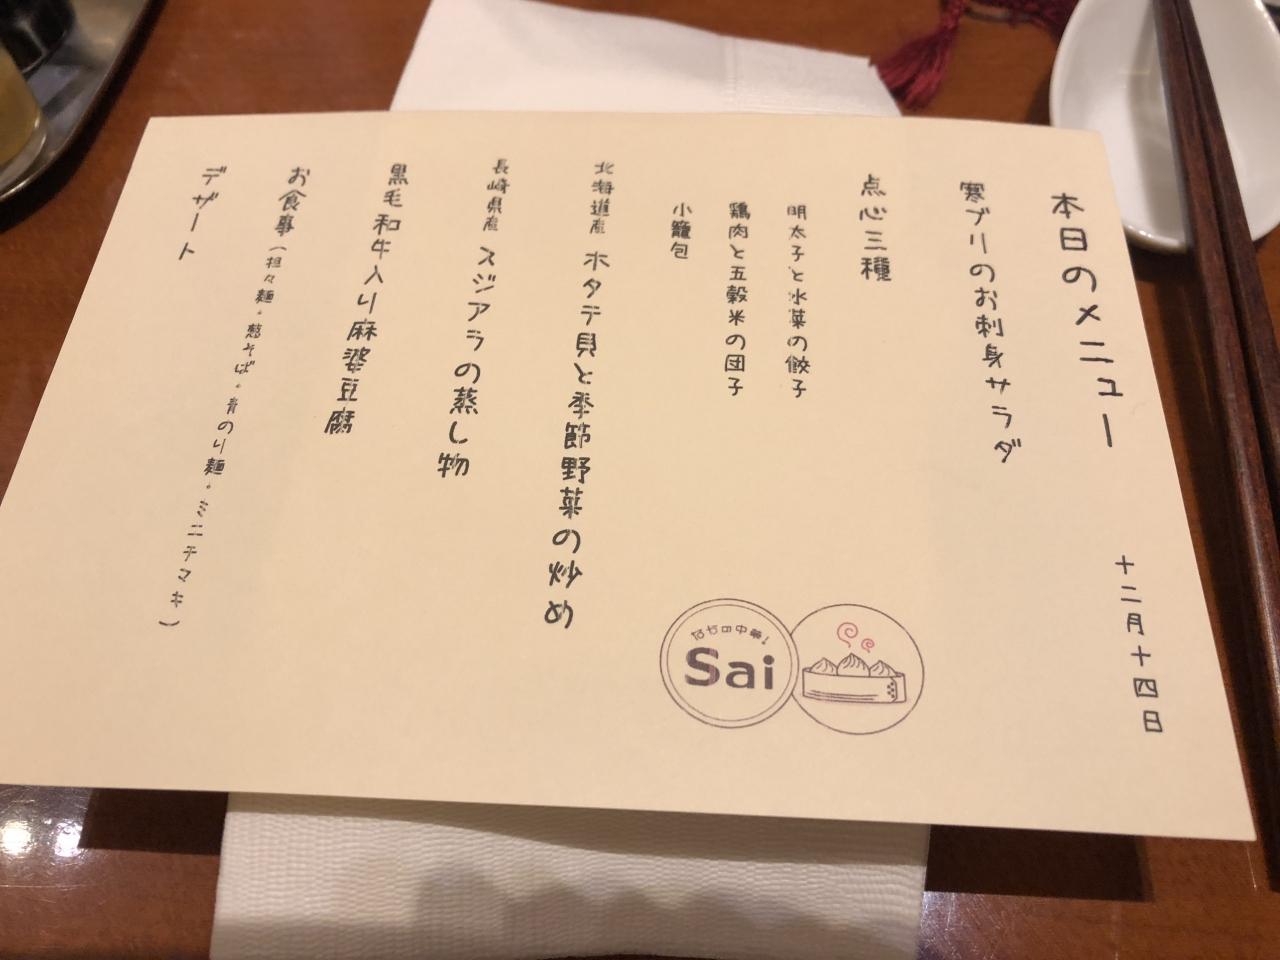 本日のメニュー
十二月十四日
寒ブリのお刺身サラダ
点心三種
明太子と水菜の餃子
鶏肉と五穀米の団子
小籠包
北海道産 ホタテ貝と季節野菜の炒め
長崎県産 スジアラの蒸し物
黒毛和牛入り麻婆豆腐
お食事（担々麺・葱そば・青のり麺・ミニチマキ）
デザート
なちの中華！
Sai